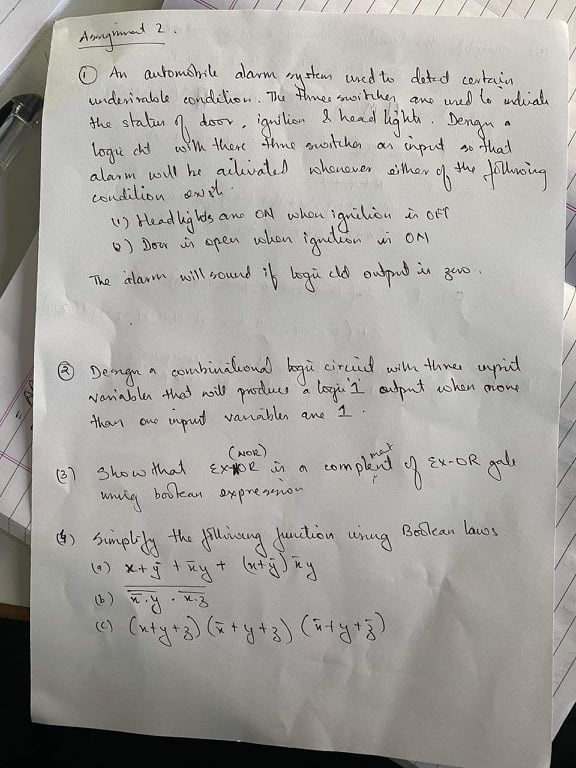 Assignment 2.
① An automobile alarm system used to detect certain
undesirable condition. The three switches are used to indicate
the status of door, ignition & head lights. Design a
logic ckt with these three switches as input so that
alarm will be activated whenever either of the following
condition exist.
(1) Headlights are ON when ignition is OFF
(2) Door is open when ignition is ON
The alarm will sound if logic ckt output is zero.
② Design a combinational logic circuit with three input
variables that will produce a logic '1' output when more
than one input variables are 1.
(3) Show that EX-NOR (NOR) is a complement of EX-OR gate
using boolean expression
(4) Simplify the following function using Boolean laws.
(a) x+ȳ + x̄y + (x+ȳ) x̄y
(b) \overline{\overline{x̄.y} . \overline{x.z}}
(c) (x+y+z) (x̄+y+z) (x̄+y+z̄)